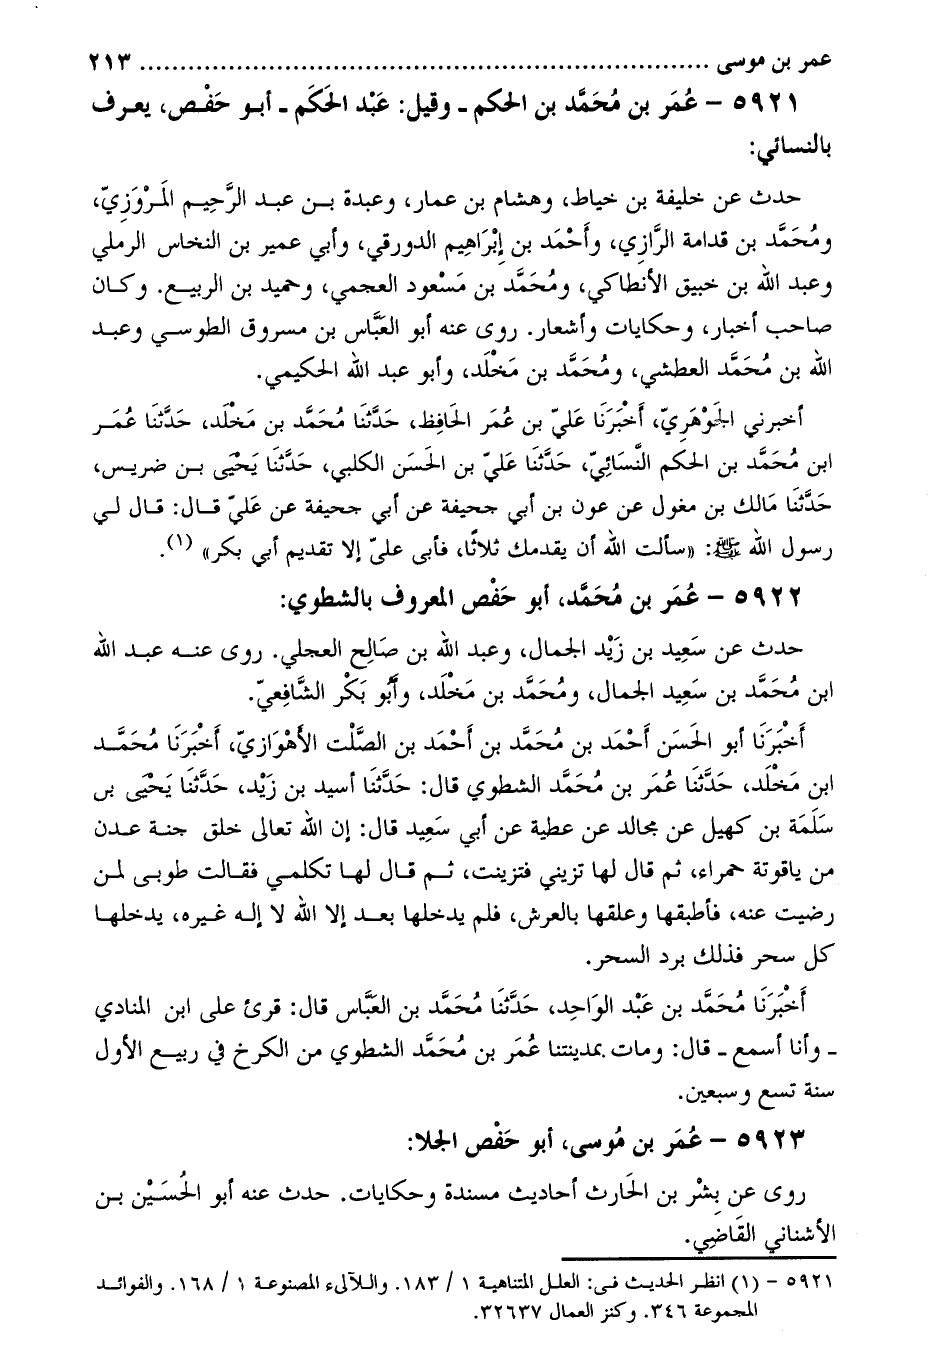 عمر بن موسى ........................................................................ ٢١٣
٥٩٢١ – عُمَر بن مُحَمَّد بن الحكم ـ وقيل: عَبْد الحَكَم ـ أبو حَفْص، يعرف
بالنسائي:
حدث عن خليفة بن خياط، وهشام بن عمار، وعبدة بن عبد الرَّحِيم المَرْوَزِيّ،
ومُحَمَّد بن قدامة الرَّازِي، وأَحْمَد بن إِبْرَاهِيم الدورقي، وأبي عمير بن النخاس الرملي
وعبد الله بن خبيق الأنطاكي، ومُحَمَّد بن مَسْعود العجمي، وحميد بن الربيع. وكان
صاحب أخبار، وحكايات وأشعار. روى عنه أبو العَبَّاس بن مسروق الطوسي وعبد
الله بن مُحَمَّد العطشي، ومُحَمَّد بن مَخْلَد، وأبو عبد الله الحكيمي.
أخبرني الجَوْهَرِيّ، أَخْبَرَنَا عَليّ بن عُمَر الحَافِظ، حَدَّثَنَا مُحَمَّد بن مَخْلَد، حَدَّثَنَا عُمَر
ابن مُحَمَّد بن الحكم النَّسَائِيّ، حَدَّثَنَا عَليّ بن الحَسَن الكلبي، حَدَّثَنَا يَحْيَى بن ضريس،
حَدَّثَنَا مَالك بن مغول عن عون بن أبي جحيفة عن أبي جحيفة عن عَليّ قال: قال لي
رسول الله ﷺ: «سألت الله أن يقدمك ثلاثًا، فأبى عليّ إلا تقديم أبي بكر» (١).
٥٩٢٢ – عُمَر بن مُحَمَّد، أبو حَفْص المعروف بالشطوي:
حدث عن سَعِيد بن زَيْد الجمال، وعبد الله بن صَالِح العجلي. روى عنه عبد الله
ابن مُحَمَّد بن سَعِيد الجمال، ومُحَمَّد بن مَخْلَد، وأَبُو بَكْر الشَّافِعيّ.
أَخْبَرَنَا أبو الحَسَن أَحْمَد بن مُحَمَّد بن أَحْمَد بن الصَّلْت الأَهْوَازِيّ، أَخْبَرَنَا مُحَمَّد
ابن مَخْلَد، حَدَّثَنَا عُمَر بن مُحَمَّد الشطوي قال: حَدَّثَنَا أسيد بن زَيْد، حَدَّثَنَا يَحْيَى بن
سَلَمَة بن كهيل عن مجالد عن عطية عن أبي سَعِيد قال: إن الله تعالى خلق جنة عدن
من ياقوتة حمراء، ثم قال لها تزيني فتزينت، ثم قال لها تكلمي فقالت طوبى لمن
رضيت عنه، فأطبقها وعلقها بالعرش، فلم يدخلها بعد إلا الله لا إله غيره، يدخلها
كل سحر فذلك برد السحر.
أَخْبَرَنَا مُحَمَّد بن عَبْد الوَاحِد، حَدَّثَنَا مُحَمَّد بن العَبَّاس قال: قرئ على ابن المنادي
ـ وأنا أسمع ـ قال: ومات بمدينتنا عُمَر بن مُحَمَّد الشطوي من الكرخ في ربيع الأول
سنة تسع وسبعين.
٥٩٢٣ – عُمَر بن مُوسى، أبو حَفْص الجلا:
روى عن بِشْر بن الحَارث أحاديث مسندة وحكايات. حدث عنه أبو الحُسَيْن بن
الأشناني القَاضِي.
٥٩٢١ – (١) انظر الحديث في: العلل المتناهية ١ / ١٨٣. واللآلىء المصنوعة ١ / ١٦٨. والفوائد
المجموعة ٣٤٦. وكنز العمال ٣٢٦٣٧.